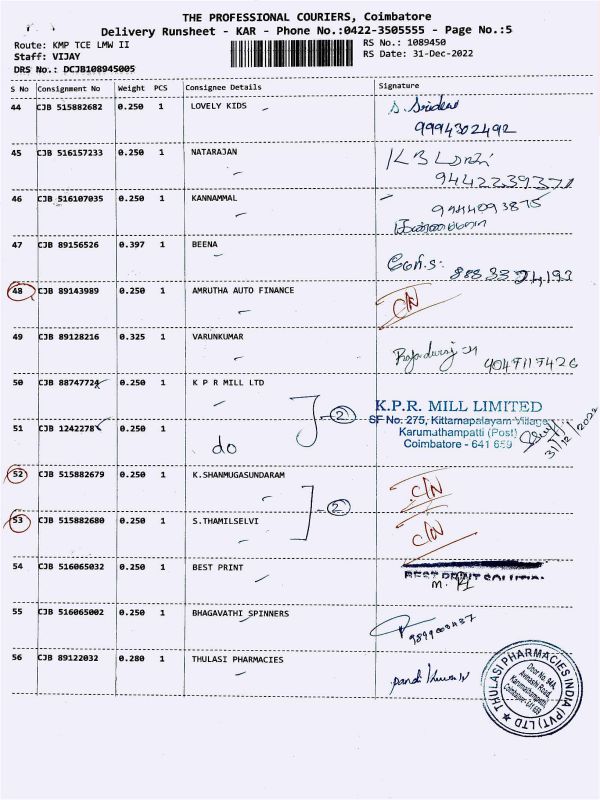 THE PROFESSIONAL COURIERS, Coimbatore
Delivery Runsheet - KAR - Phone No.:0422-3505555 - Page No.:5
Route: KMP TCE LMW II RS No.: 1089450
Staff: VIJAY RS Date: 31-Dec-2022
DRS No.: DCJB108945005
S No Consignment No Weight PCS Consignee Details Signature
44 CJB 515882682 0.250 1 LOVELY KIDS S. Sridevi
9994302492
45 CJB 516157233 0.250 1 NATARAJAN
9442239371
46 CJB 516107035 0.250 1 KANNAMMAL 9944093875
47 CJB 89156526 0.397 1 BEENA
48 CJB 89143989 0.250 1 AMRUTHA AUTO FINANCE C/N
49 CJB 89128216 0.325 1 VARUNKUMAR 9047117426
50 CJB 88747724 0.250 1 K P R MILL LTD 2 K.P.R. MILL LIMITED
SF No: 275, Kittampalayam Village
51 CJB 1242278 0.250 1 do Karumathampatti (Post)
Coimbatore - 641 659
31/12/2022
52 CJB 515882679 0.250 1 K.SHANMUGASUNDARAM C/N
2
53 CJB 515882680 0.250 1 S.THAMILSELVI C/N
54 CJB 516065032 0.250 1 BEST PRINT
55 CJB 516065002 0.250 1 BHAGAVATHI SPINNERS
56 CJB 89122032 0.280 1 THULASI PHARMACIES
THULASI PHARMACIES INDIA (PVT) LTD
Door No. 94A,
Avinashi Road,
Karumathampatti
Coimbatore-641 659